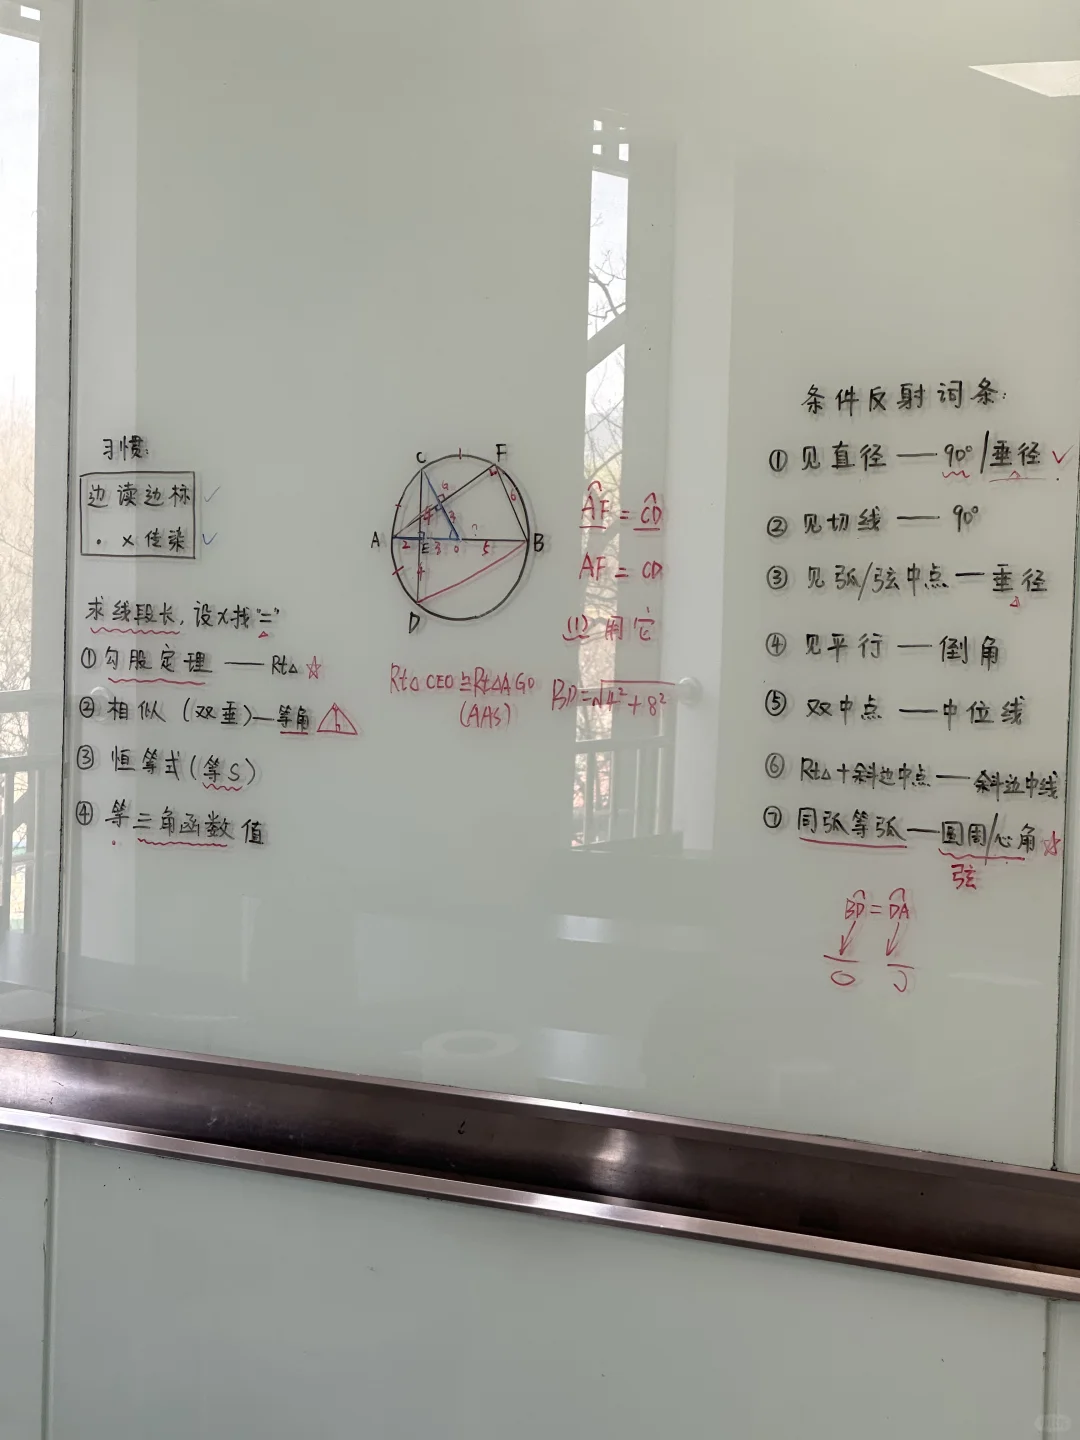 习惯:
边读边标
· × 传染
求线段长, 设x找"="
① 勾股定理 —— Rt△ ☆
② 相似 (双垂) — 等角
③ 恒等式 (等S)
④ 等三角函数值
C
F
G
6
4
3
A
2
E
3
O
?
5
B
4
D
AF = CD
AF = CD
(1) 用它
Rt△CEO≌Rt△AGO
(AAS)
BD=√4²+8²
条件反射词条:
① 见直径 —— 90°/垂径 ✓
② 见切线 —— 90°
③ 见弧/弦中点 — 垂径
④ 见平行 —— 倒角
⑤ 双中点 —— 中位线
⑥ Rt△+斜边中点 —— 斜边中线
⑦ 同弧等弧 — 圆周/心角 ☆
弦
BD = DA